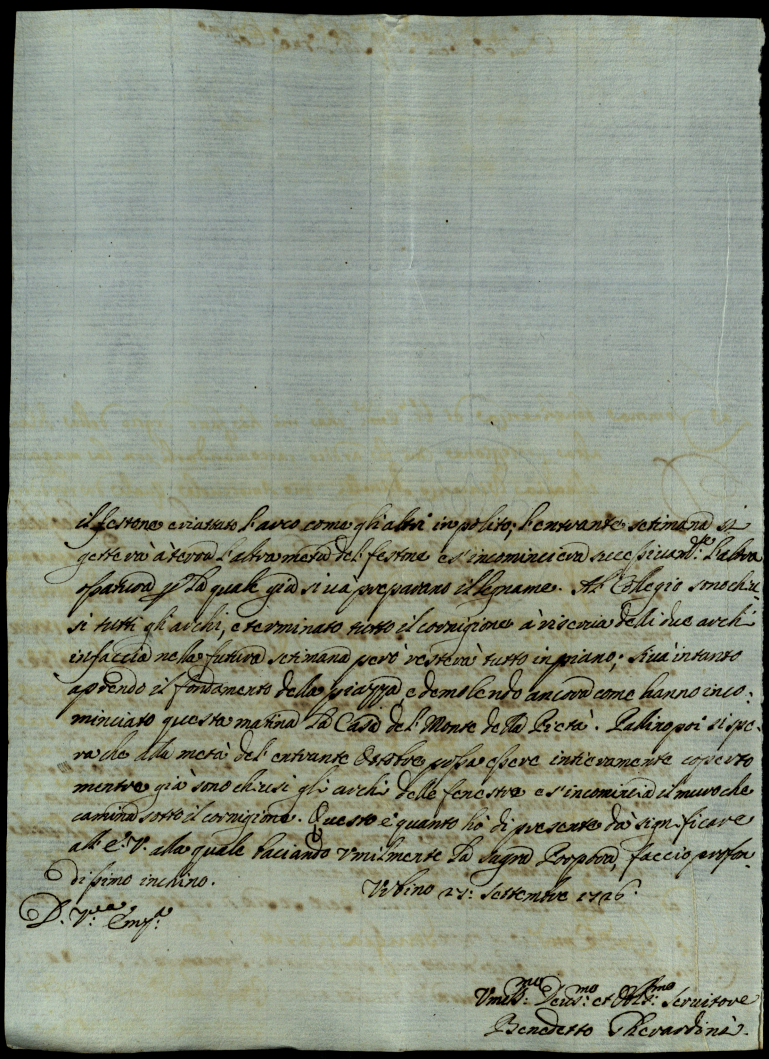 il festone e riattato l'arco come gli altri in polito; l'entrante setimana si
getterà à terra l'altra metà del festone e s'incomincierà successivam.te l'altra
 La quale già si và preparano il legname. Al Collegio sono chiu-
si tutti gli archi, e terminato tutto il cornigione à riserva delli due archi
in faccia nella futura setimana però resterà tutto in piano; si và intanto
aprendo il fondamento della piazza e demolendo ancora come hanno inco-
minciato questa matina La Casa del Monte della Pietà. poi si spe-
ra che alla metà del entrante Ottobre possa essere intieramente coperto
mentre già sono chiusi gli archi delle fenestre e s'incomincia il muro che
camina sotto il cornigione. Questo è quanto hò di presente dà significare
all' E. V. alla quale baciando Umilmente La Sagra Porpora, faccio profon-
dissimo inchino.
Urbino 27: Settembre 1726.
D. V.ra Em.za
Umiliss.mo Deus.mo et Obl.mo Servitore
Benedetto